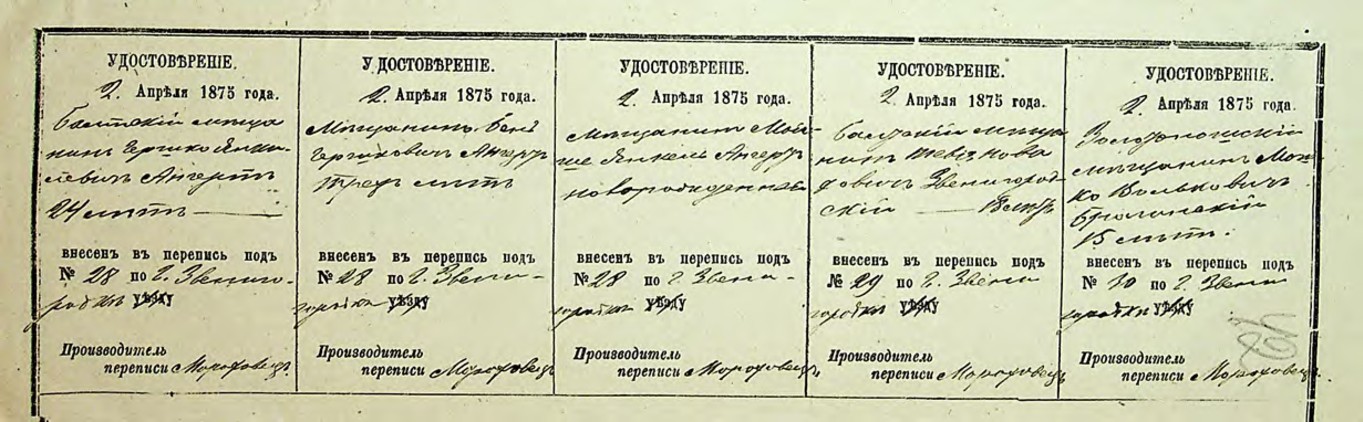 УДОСТОВѢРЕНІЕ.
2. Апрѣля 1875 года.
Балтскій мѣща
нинъ Гершко Янке-
левичъ Ангертъ
24 лѣтъ
внесенъ въ перепись подъ
№ 28 по г. Звениго-
родкѣ уѣзду
Производитель
переписи Мороховецъ.
УДОСТОВѢРЕНІЕ.
2. Апрѣля 1875 года.
Мѣщанинъ
Гершковичъ Ангертъ
трехъ лѣтъ
внесенъ въ перепись подъ
№ 28 по г. Звени-
городкѣ уѣзду
Производитель
переписи Мороховецъ
УДОСТОВѢРЕНІЕ.
2. Апрѣля 1875 года.
Мѣщанинъ Мой-
ше Янкель Ангертъ
новорожденный
внесенъ въ перепись подъ
№ 28 по г. Звени-
городкѣ уѣзду
Производитель
переписи Мороховецъ
УДОСТОВѢРЕНІЕ.
2. Апрѣля 1875 года.
Балтскій мѣща
нинъ
Звенигород-
скій лѣтъ
внесенъ въ перепись подъ
№ 29 по г. Звени
городкѣ уѣзду
Производитель
переписи Мороховецъ
УДОСТОВѢРЕНІЕ.
2. Апрѣля 1875 года.
Золотоношскій
мѣщанинъ Мош-
ко Вольковичъ
15 лѣтъ.
внесенъ въ перепись подъ
№ 30 по г. Звени
городкѣ уѣзду
Производитель
переписи Мороховецъ.